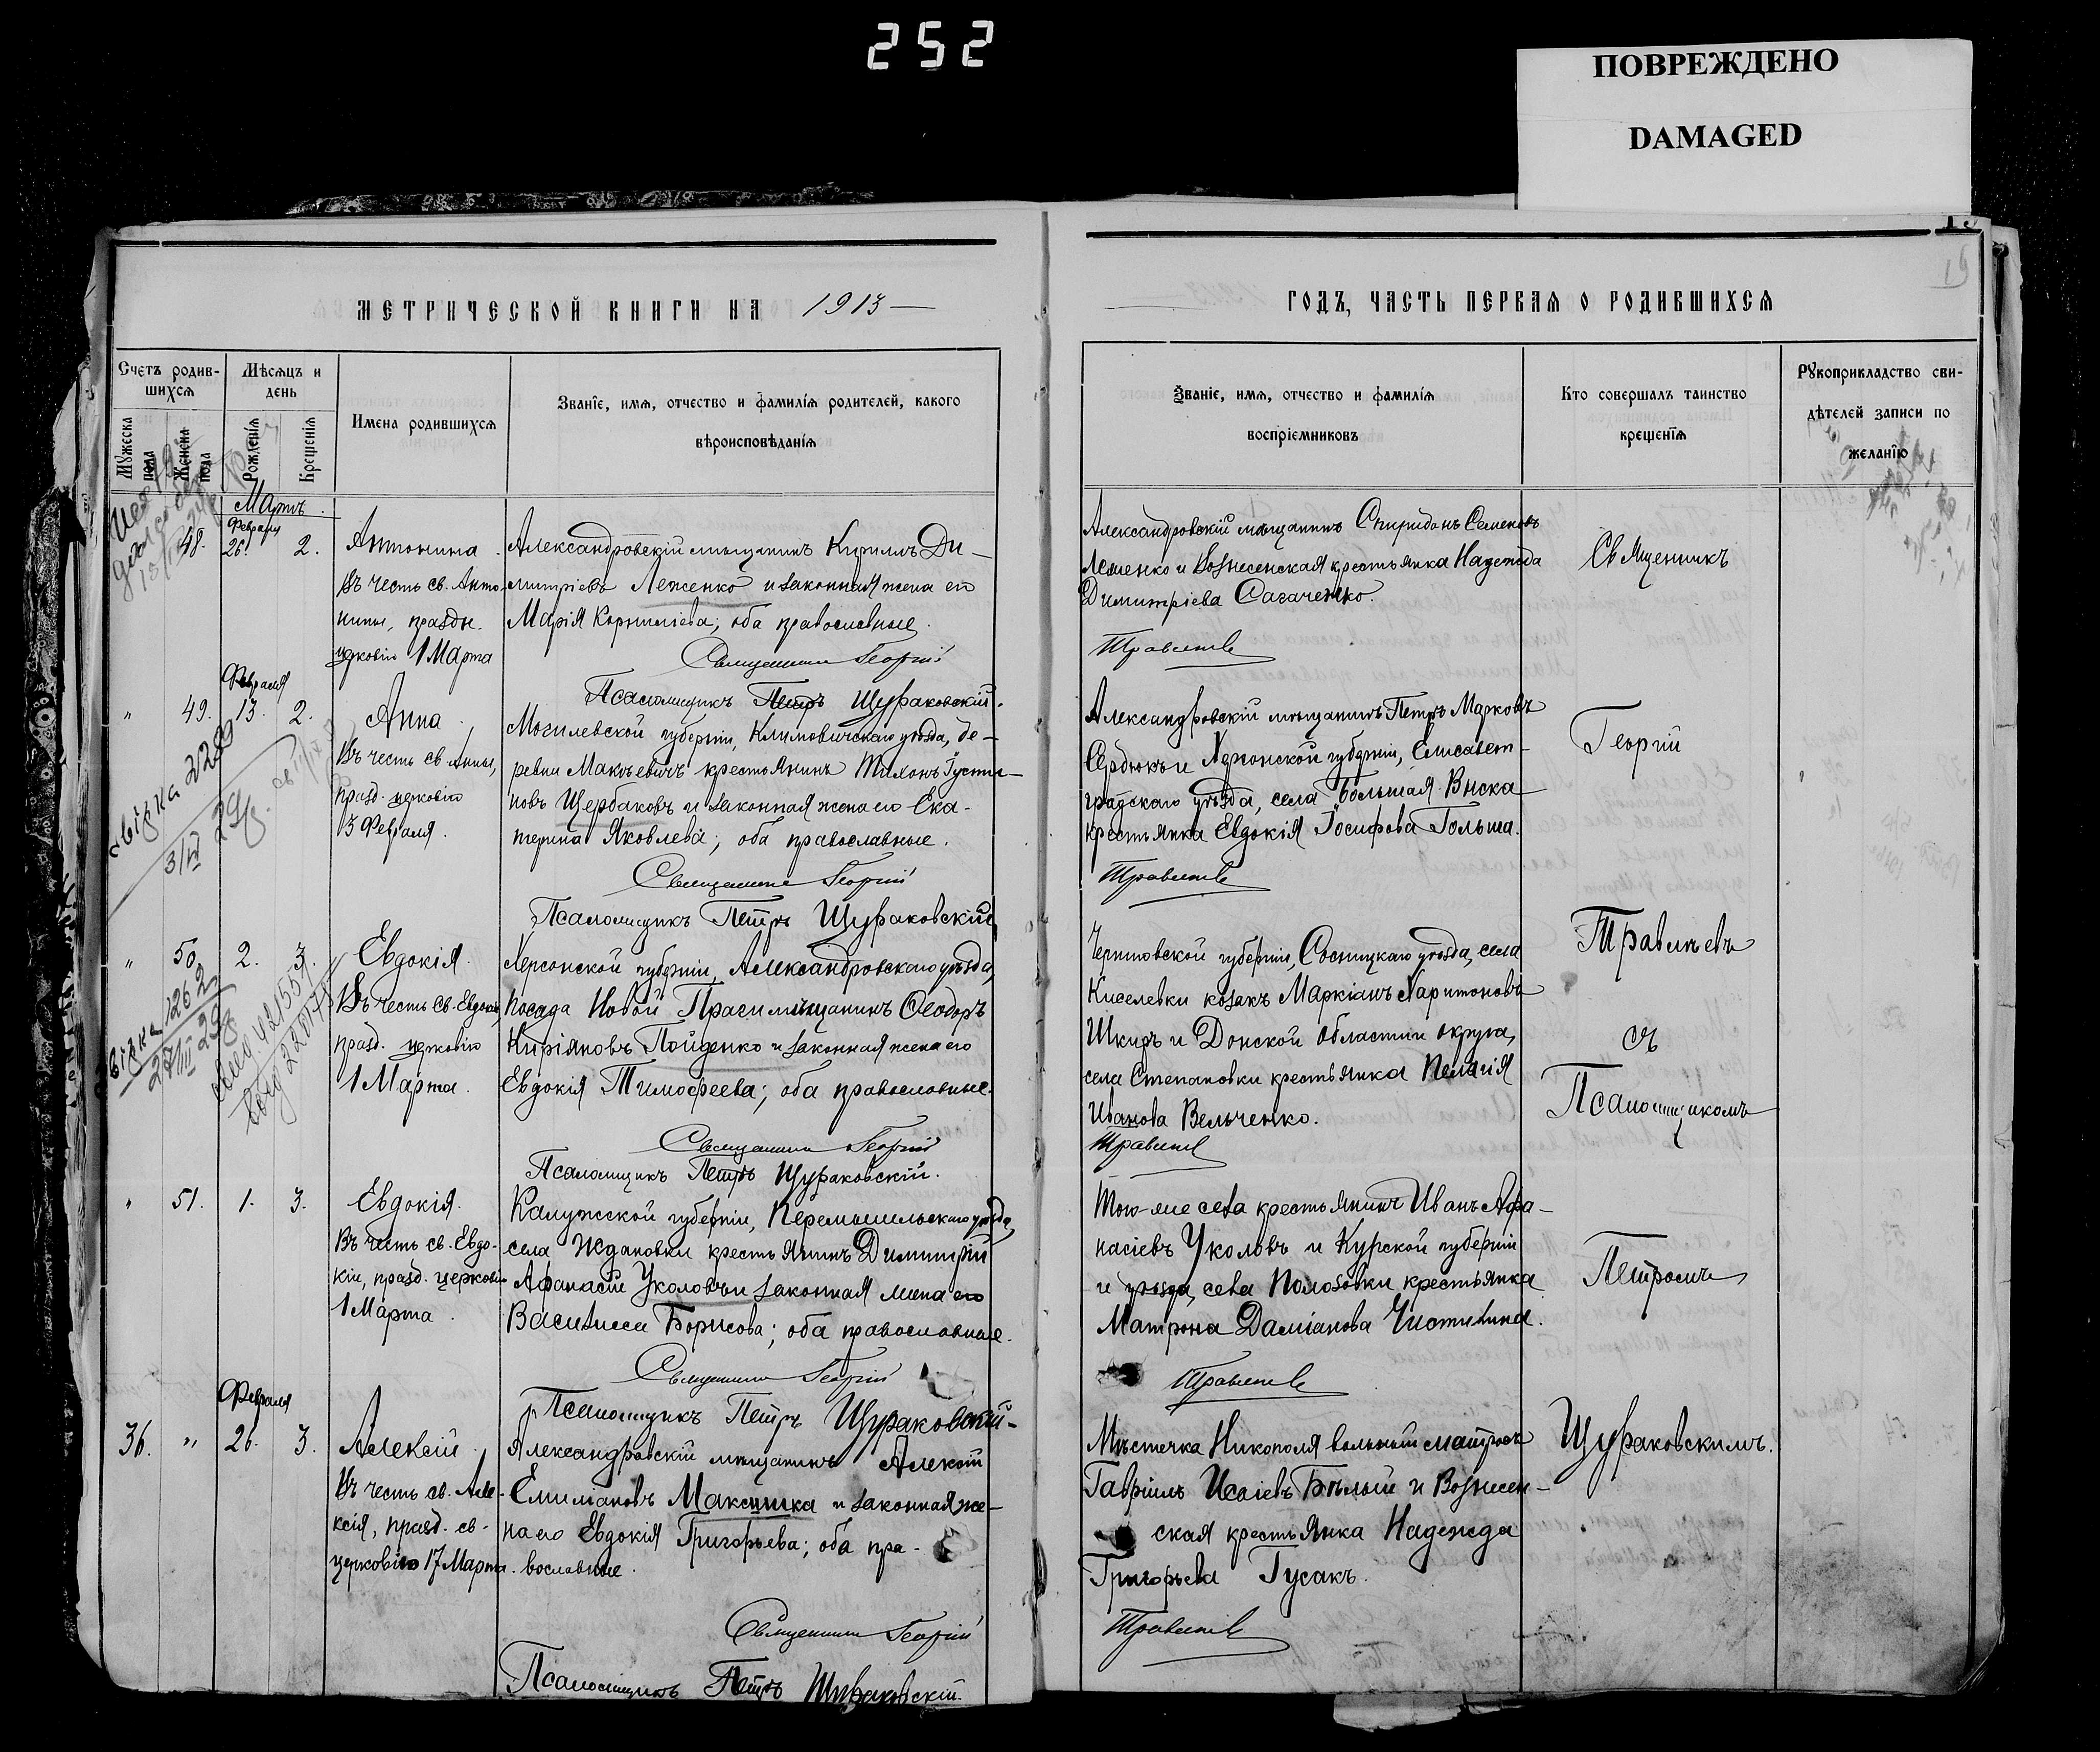 252
ПОВРЕЖДЕНО
DAMAGED
19
МЕТРИЧЕСКОЙ КНИГИ НА 1913
Счетъ родив-
шихся
Мѣсяцъ и
день
Мужеска
пола
Женска
пола
Рожденія
Крещенія
Имена родившихся
Званіе, имя, отчество и фамилія родителей, какого
вѣроисповѣданія
Мартъ
Февраля
48. 26. 2.
Антонина
Въ честь св. Анто-
нины, праздн.
церковію 1 Марта
Александровскій мѣщанинъ Кириллъ Ди-
митріевъ Леженко и законная жена его
Марія Корниліева; оба православные.
Священникъ Георгій
Псаломщикъ Петръ Щураковскій.
Февраля
" 49. 13. 2.
Анна
Въ честь св. Анны,
празд. церковію
3 Февраля.
Могилевской губерніи, Климовичскаго уѣзда, де-
ревни крестьянинъ Тихонъ
новъ Щербаковъ и законная жена его Ека-
терина Яковлева; оба православные.
Священникъ Георгій
Псаломщикъ Петръ Щураковскій
3/VI 29
" 50 2. 3.
Евдокія.
Въ честь св. Евдокіи,
празд. церковію
1 Марта.
Херсонской губерніи, Александровскаго уѣзда,
посада Новой Праги мѣщанинъ Ѳеодоръ
Киріяновъ Пойденко и законная жена его
Евдокія Тимоѳеева; оба православные.
Священникъ Георгій
Псаломщикъ Петръ Щураковскій.
" 51. 1. 3.
Евдокія.
Въ честь св. Евдо-
кіи, празд. церковію
1 Марта.
Калужской губерніи, Перемышльскаго уѣзда,
села Ждановки крестьянинъ Димитрій
Афанасіи Уколовъ и законная жена его
Василисса Борисова; оба православные.
Священникъ Георгій
Псаломщикъ Петръ Щураковскій-
Февраля
36. " 26. 3.
Алексій.
Въ честь св. Але-
ксія, празд. св.
церковію 17 Марта.
Александровскій мѣщанинъ Алексій
Емиліановъ и законная же-
на его Евдокія Григорьева; оба пра-
вославные.
Священникъ Георгій
Псаломщикъ Петръ Щураковскій.
ГОДЪ, ЧАСТЬ ПЕРВАЯ О РОДИВШИХСЯ
Званіе, имя, отчество и фамилія
воспріемниковъ
Кто совершалъ таинство
крещенія
Рукоприкладство сви-
дѣтелей записи по
желанію
Александровскій мѣщанинъ Спиридонъ Семеновъ
и Вознесенская крестьянка Надежда
Димитріева Сагаченко.
Травинъ
Александровскій мѣщанинъ Петръ Марковъ
Сердюкъ и Херсонской губерніи, Елисавет-
градскаго уѣзда, села Большая Виска
крестьянка Евдокія Іосифова Гольма.
Черниговской губерніи, Сосницкаго уѣзда, села
Киселевки козакъ Маркіанъ Харитоновъ
Шкиръ и Донской области и округа,
села Степановки крестьянка Пелагія
Иванова Вельченко.
Того-же села крестьянинъ Иванъ Афа-
насіевъ Уколовъ и Курской губерніи
и уѣзда, села Полозовки крестьянка
Матрона Даміанова Чистилина.
Мѣстечка Никополя вольный матросъ
Гавріилъ Исаіевъ Бѣлый и Вознесен-
ская крестьянка Надежда
Григорьева Гусакъ.
Священникъ
Георгій
Травлѣевъ
съ
Псаломщикомъ
Петромъ
Щураковскимъ.